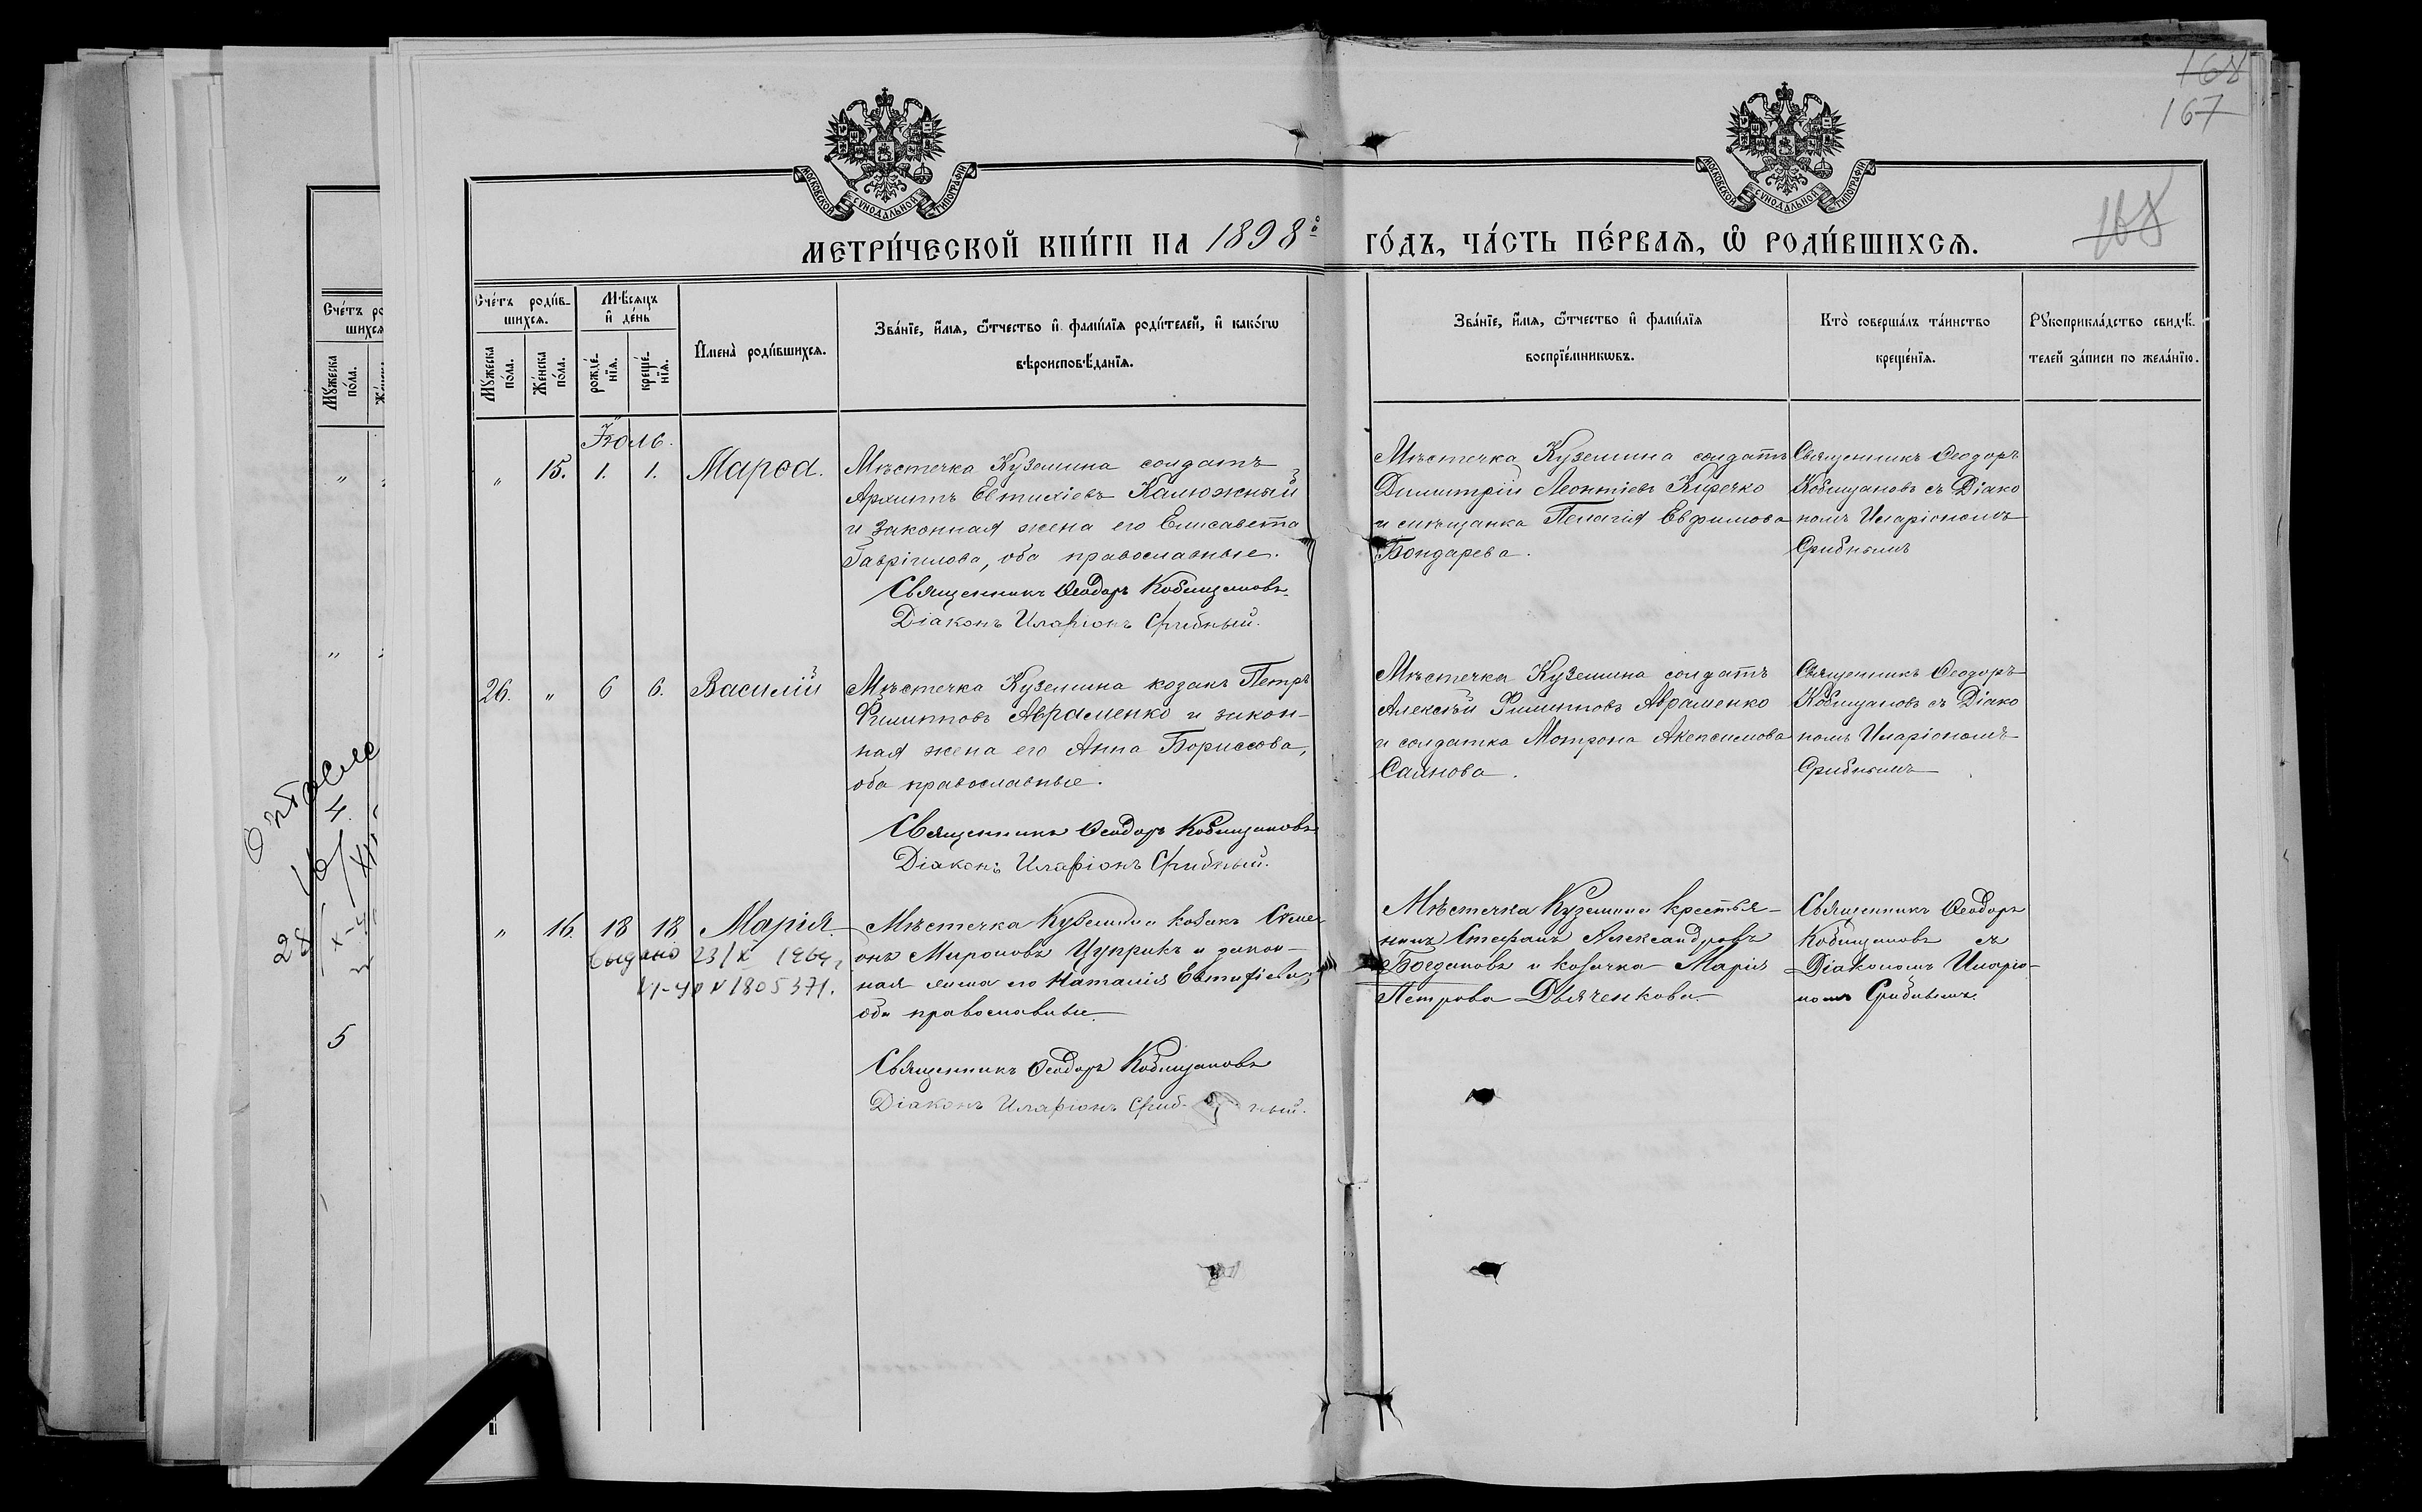 168
167
168
МОСКОВСКОЙ СѴНОДАЛЬНОЙ ТИПОГРАФІИ
МОСКОВСКОЙ СѴНОДАЛЬНОЙ ТИПОГРАФІИ
МЕТРИ́ЧЕСКОЙ КНИ́ГИ НА 1898º ГО́ДЪ, ЧА́СТЬ ПЕ́РВАѦ, Ѽ РОДИ́ВШИХСѦ.
Сче́тъ роди́в-
шихсѧ.
Мꙋжеска по́ла.
Же́нска по́ла.
Мѣ́сѧцъ
и҆ де́нь
рожде́-
нїѧ.
креще́-
нїѧ.
И҆мена̀ роди́вшихсѧ.
Зва́нїе, и҆́мѧ, ѻ҆́тчество и҆ фами́лїѧ роди́телей, и҆ како́гѡ
вѣроисповѣ́данїѧ.
Зва́нїе, и҆́мѧ, ѻ҆́тчество и҆ фами́лїѧ
воспрїе́мникѡвъ.
Кто̀ соверша́лъ та́инство
креще́нїѧ.
Рꙋкоприкла́дство свидѣ́-
телей за́писи по жела́нїю.
Іюль.
„ 15. 1. 1. Марѳа.
Мѣстечка Куземина солдатъ
Архиппъ Евтихіевъ Калюжный
и законная жена его Елисавета
Гавріилова, оба православные.
Священникъ Ѳеодоръ Кобищановъ.
Діаконъ Иларіонъ Срибный.
Мѣстечка Куземина солдатъ
Димитрій Леонтіевъ Киречко
и мѣщанка Пелагія Евфимова
Бондарева.
Священникъ Ѳеодоръ
Кобищановъ съ Діако
номъ Иларіономъ
Срибнымъ
26. „ 6 6. Василій
Мѣстечка Куземина козакъ Петръ
Филипповъ Авраменко и закон-
ная жена его Анна Борисова,
оба православные.
Священникъ Ѳеодоръ Кобищановъ
Діаконъ Иларіонъ Срибный.
Мѣстечка Куземина солдатъ
Алексѣй Филипповъ Авраменко
и солдатка Мотрона Акепсимова
Саянова.
Священникъ Ѳеодоръ
Кобищановъ съ Діако
номъ Иларіономъ
Срибнымъ
„ 16. 18 18 Марія.
выдано 23/X 1964г
VI-УР N 1805371.
Мѣстечка Куземина козакъ Симе
онъ Мироновъ Цуприкъ и закон-
ная жена его Наталія
оба православные.
Священникъ Ѳеодоръ Кобищановъ
Діаконъ Иларіонъ Срибный.
Мѣстечка Куземина крестья-
нинъ Стефанъ Александровъ
Богдановъ и козачка Марія
Петрова Дьяченкова
Священникъ Ѳеодоръ
Кобищановъ съ
Діакономъ Иларіо-
номъ Срибнымъ.
Сче́тъ ро
шихсѧ
Мꙋжеска по́ла.
„
„
5